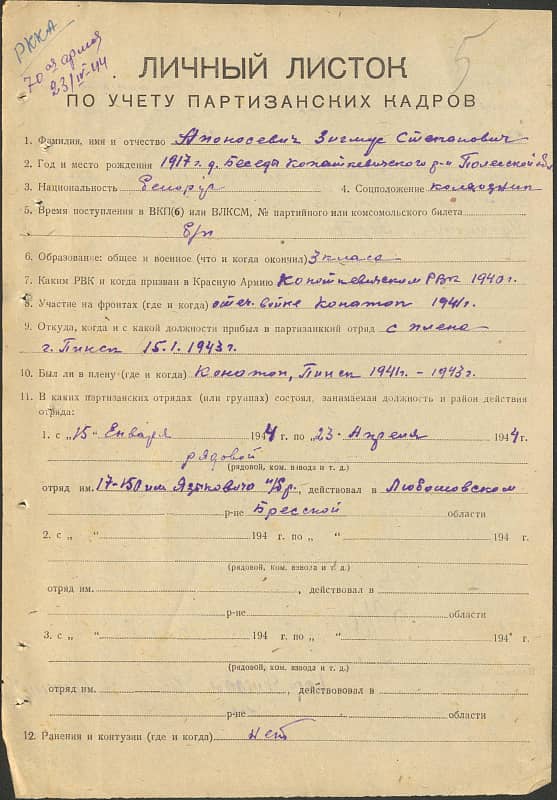 РККА
70ая армия
23/IV-44
5
ЛИЧНЫЙ ЛИСТОК
ПО УЧЕТУ ПАРТИЗАНСКИХ КАДРОВ
1. Фамилия, имя и отчество Апоносевич Зигмус Степанович
2. Год и место рождения 1917 г. д. Беседы Копаткевичского р-н Полесской обл
3. Национальность Белорус 4. Соцположение колхозник
5. Время поступления в ВКП(б) или ВЛКСМ, № партийного или комсомольского билета
Б/п
6. Образование: общее и военное (что и когда окончил) 3 класса
7. Каким РВК и когда призван в Красную Армию Копаткевичском РВК 1940 г.
8. Участие на фронтах (где и когда) отеч. войне Конатоп 1941 г.
9. Откуда, когда и с какой должности прибыл в партизанский отряд с плена
г. Пинск 15.1.1943 г.
10. Был ли в плену (где и когда) Конатоп, Пинск 1941 г. - 1943 г.
11. В каких партизанских отрядах (или группах) состоял, занимаемая должность и район действия
отряда:
1. с „15" Января 1944 г. по „23" Апреля 1944 г.
рядовой
(рядовой, ком. взвода и т. д.)
отряд им. действовал в Любешовском
р-не Брестской области
2. с „ " 194 г. по „ " 194 г.
(рядовой, ком. взвода и т. д.)
отряд им. , действовал в
р-не области
3. с „ " 194 г. по „ " 194 г.
(рядовой, ком. взвода и т. д.)
отряд им. , действововал в
р-не области
12. Ранения и контузии (где и когда) нет